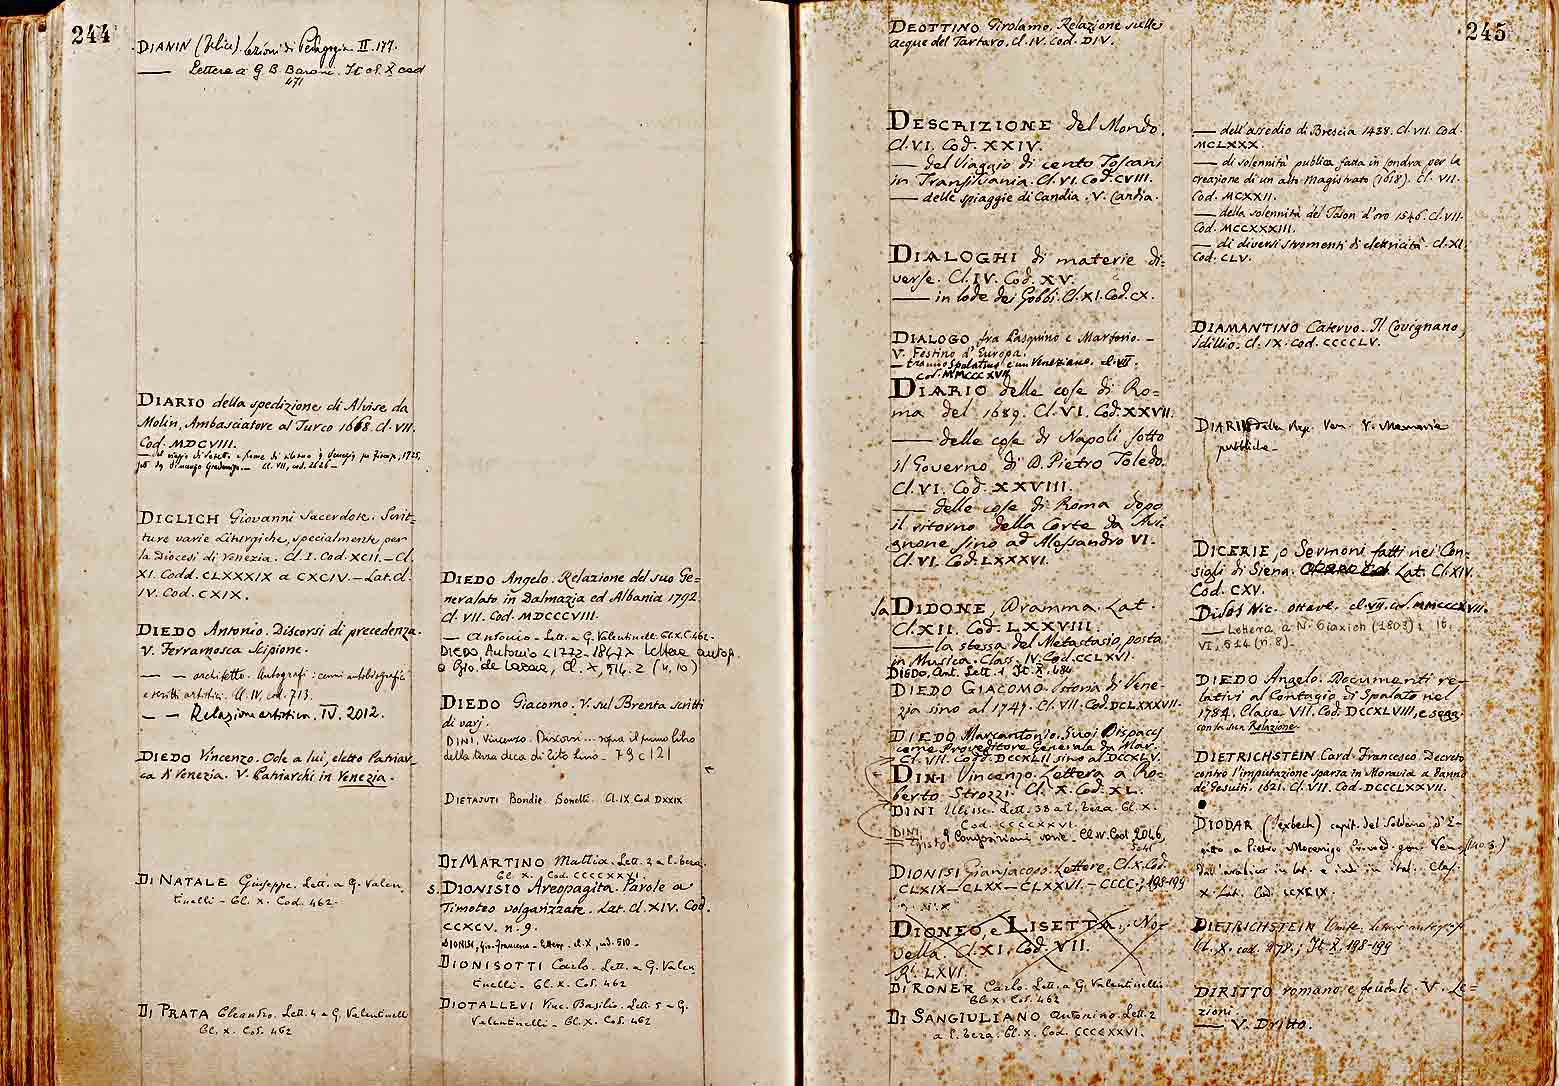 244
DIANIN (Felice). Lezioni di Pedagogia II. 177.
— Lettere a G. B. Baroni. It. cl. X cod
471
DIARIO della spedizione di Alvise da
Molin, Ambasciatore al Turco 1668. Cl. VII.
Cod. MDCVIII.
Cl. VII, cod. 2626 —
DICLICH Giovanni Sacerdote. Scrit-
ture varie Liturgiche, specialmente per
la Diocesi di Venezia. Cl. I. Cod. XCII. – Cl.
XI. Codd. CLXXXIX a CXCIV. – Lat. cl.
IV. Cod. CXIX.
DIEDO Antonio. Discorsi di precedenza.
V. Ferramosca Scipione.
— — architetto. Autografi: cenni autobiografici
e scritti artistici. Cl. IV, cod. 713.
— — Relazione artistica. IV. 2012.
DIEDO Vincenzo. Ode a lui, eletto Patriar-
ca di Venezia. V. Patriarchi in Venezia.
DI NATALE Giuseppe. Lett. a G. Valen
tinelli – Cl. X. Cod. 462.
DI PRATA Lett. 4 a G. Valentinelli
Cl. X. Cod. 462
DIEDO Angelo. Relazione del suo Ge=
neralato in Dalmazia ed Albania 1792
Cl. VII. Cod. MDCCCVIII.
— Antonio – Lett. a G. Valentinelli. Cl. X. C. 462.
DIEDO, Antonio <1772-1847> Lettere autogr.
a Gio. de Lazara, Cl. X, 514. 2 (n. 10)
DIEDO Giacomo. V. sul Brenta scritti
di varj.
DINI, Vincenzo. Discorsi ... sopra il primo libro
della terza deca di Tito Livio –
DIETAJUTI Bondie. Sonetti. Cl. IX Cod DXXIX
DI MARTINO Mattia. Lett. 2 a L. Beza.
Cl. X. Cod. CCCCXXVI.
S. DIONISIO Areopagita. Parole a
Timoteo volgarizzate. Lat. Cl. XIV. Cod.
CCXCV. n. 9.
DIONISI, Gio. Francesco – Lettere. cl. X, cod. 510 –
DIONISOTTI Carlo. Lett. a G. Valen
tinelli – Cl. X. Cod. 462
DIOTALLEVI Vinc. Basilio. Lett. 5 a G.
Valentinelli – Cl. X. Cod. 462
245
DEOTTINO Girolamo. Relazione sulle
acque del Tartaro. Cl. IV. Cod. DIV.
DESCRIZIONE del Mondo.
Cl. VI. Cod. XXIV.
— del Viaggio di cento Toscani
in Transilvania. Cl. VI. Cod. CVIII.
— delle spiaggie di Candia. V. Candia.
DIALOGHI di materie di=
verse. Cl. IV. Cod. XV.
— in lode dei Gobbi. Cl. XI. Cod. CX.
DIALOGO fra Pasquino e Marforio. –
V. Festino d'Europa.
— tra uno Spalatino e un Veneziano. cl. VII.
Cod. MMCCCXVII
DIARIO delle cose di Ro=
ma del 1689. Cl. VI. Cod. XXVII.
— delle cose di Napoli sotto
il Governo di D. Pietro Toledo.
Cl. VI. Cod. XXVIII.
— delle cose di Roma dopo
il ritorno della Corte da Avi-
gnone sino ad Alessandro VI.
Cl. VI. Cod. LXXXVI.
la DIDONE, Dramma. Lat.
Cl. XII. Cod. LXXVIII.
— la stessa del Metastasio, posta
in Musica. Class. IV. Cod. CCLXVI.
DIEDO, Ant. Lett. It. X. 484
DIEDO GIACOMO. Storia di Vene-
zia sino al 1747. Cl. VII. Cod. DCLXXXVII.
DIEDO Marcantonio. Suoi Dispacci
come Proveditore Generale da Mar.
Cl. VII. Codd. DCCXLII sino al DCCXLV.
DINI Vincenzo. Lettera a Ro=
berto Strozzi. Cl. X. Cod. XL.
DINI Ulisse. Lett. 38 a L. Beza. Cl. X.
Cod. CCCCXXVI.
DINI, Composizioni varie – Cl. IV. Cod 2046,
DIONISI Gianjacopo. Lettere. Cl. X. Cod.
CLXIX – CLXX – CLXXVI. – CCCC; 198-199
DIONEO, e LISETTA. No-
vella. Cl. XI. Cod. VII.
R.i LXVI.
DI RONER Carlo. Lett. a G. Valentinelli
Cl. X. Cod. 462
DI SANGIULIANO Antonino. Lett. 2
a L. Beza. Cl. X. Cod. CCCCXXVI.
— dell'assedio di Brescia 1438. Cl. VII. Cod.
MCLXXX.
— di solennità publica fatta in Londra per la
creazione di un alto Magistrato (1618). Cl. VII.
Cod. MCXXII.
— della solennità del Toson d'oro 1546. Cl. VII.
Cod. MCCXXXIII.
— di diversi stromenti di elettricità. Cl. XI.
Cod. CLV.
DIAMANTINO Catervo. Il Covignano,
Idillio. Cl. IX. Cod. CCCCLV.
DIARII della Rep. Ven. V. Memorie
pubbliche –
DICERIE, o Sermoni fatti nei Con-
sigli di Siena. Lat. Cl. XIV.
Cod. CXV.
Nic. ottave. cl. VII. cod. MMCCCXVII.
— Lettera a N. Giaxich (1803): It.
VI, 514 (n. 8).
DIEDO Angelo. Documenti re-
lativi al Contagio di Spalato nel
1784. Classe VII. Cod. DCCXLVIII, e segg.
con la sua Relazione.
DIETRICHSTEIN Card. Francesco. Decreto
contro l'imputazione sparsa in Moravia a danno
de' Gesuiti. 1621. Cl. VII. Cod. DCCCLXXVII.
DIODAR capit. del Soldano d'E-
gitto a Pietro Mocenigo Provved. gen. Ven.
dall'arabico in lat. e indi in ital. Clas.
X. Lat. Cod.
DIETRICHSTEIN
Cl. X. cod. It. X. 198-199
DIRITTO romano e feudale. V. Le=
zioni.
— V. Dritto.